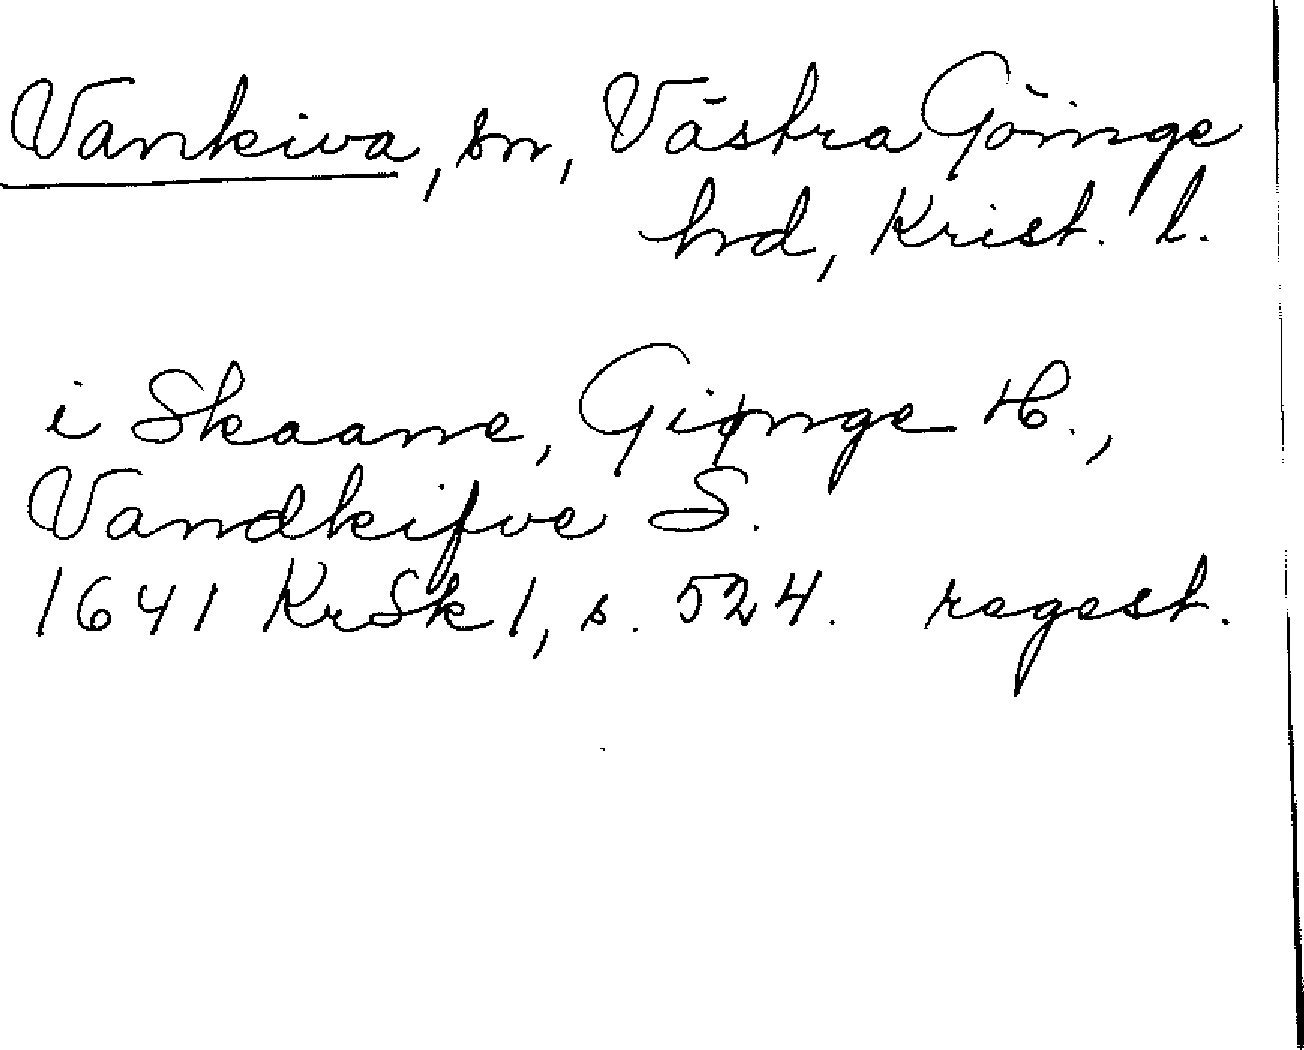 Vankiva, sn, Västra Göinge
hd, Krist. l.
i Skaane, Giønge H.,
Vandkifve S.
1641 KrSk 1, s. 524. regest.